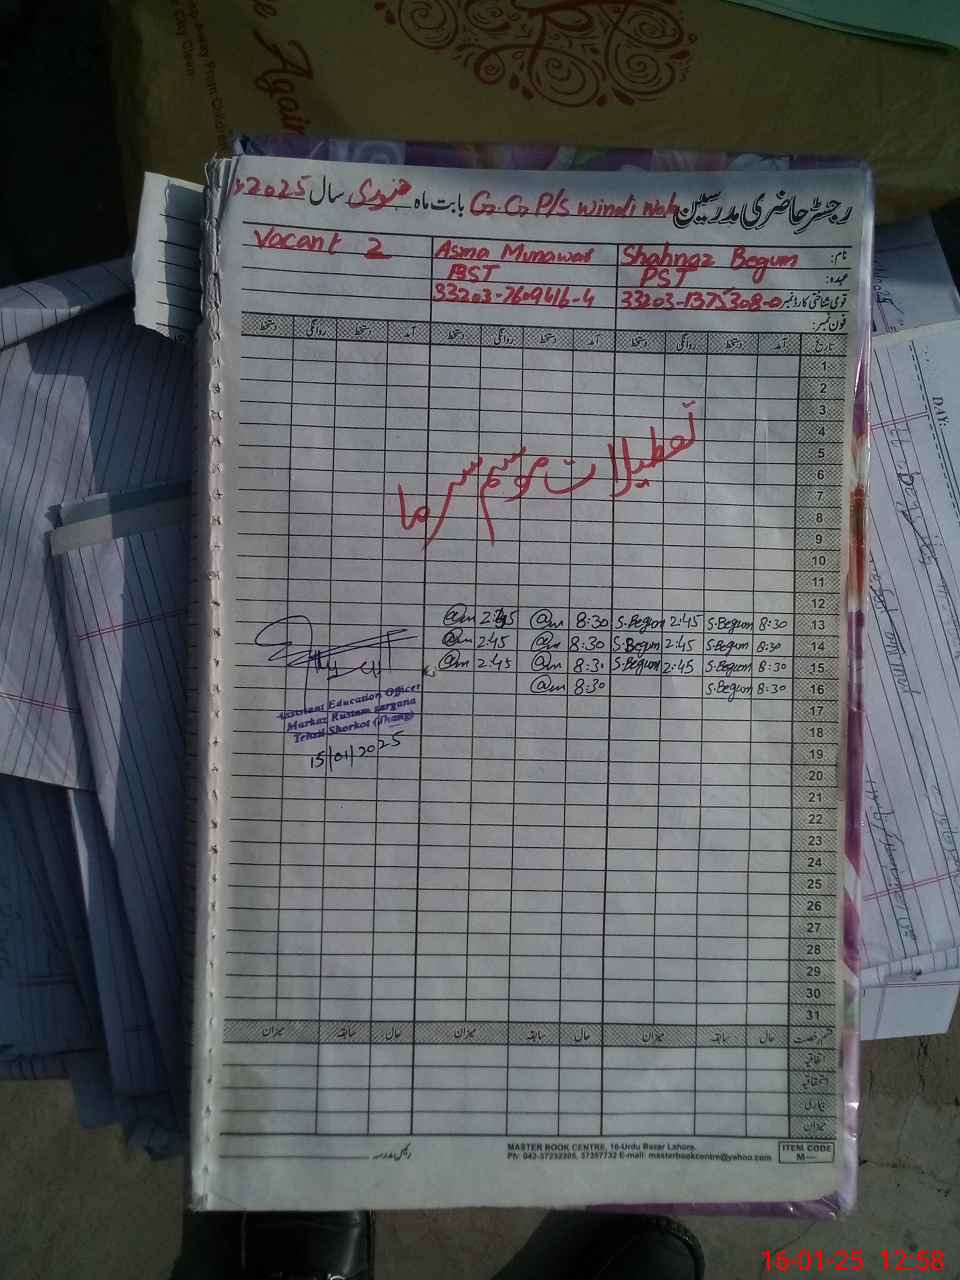 Again
رجسٹر حاضری مدرسین G.G P/S Windi Wala بابت ماہ جنوری سال 2025
نام: Shahnaz Begum Asma Munawar Vacant 2
عہدہ: PST PST
قومی شناختی کارڈ نمبر 33203-1375308-0 33203-7609416-4
فون نمبر:
تاریخ آمد دستخط روانگی دستخط آمد دستخط روانگی دستخط آمد دستخط روانگی دستخط
1
2
3
4
5
6
7
8
9
10
11
12
تعطیلات موسم سرما
13 8:30 S.Begum 2:45 S.Begum 8:30 2:45
14 8:30 S.Begum 2:45 S.Begum 8:30 2:45
15 8:30 S.Begum 2:45 S.Begum 8:30 2:45
16 8:30 S.Begum 8:30
17
18
19
20
21
22
23
24
25
26
27
28
29
30
31
Assistant Education Officer
Markaz Rustam Sargana
Tehsil Shorkot (Jhang)
15/01/2025
قسم رخصت حال سابقہ میزان حال سابقہ میزان حال سابقہ میزان
اتفاقیہ
استحقاقیہ
بیماری
میزان
رئیس مدرسہ
MASTER BOOK CENTRE, 16-Urdu Bazar Lahore.
Ph: 042-37232205, 37357732 E-mail: masterbookcentre@yahoo.com
ITEM CODE
M—
DAY:
16-01-25 12:58